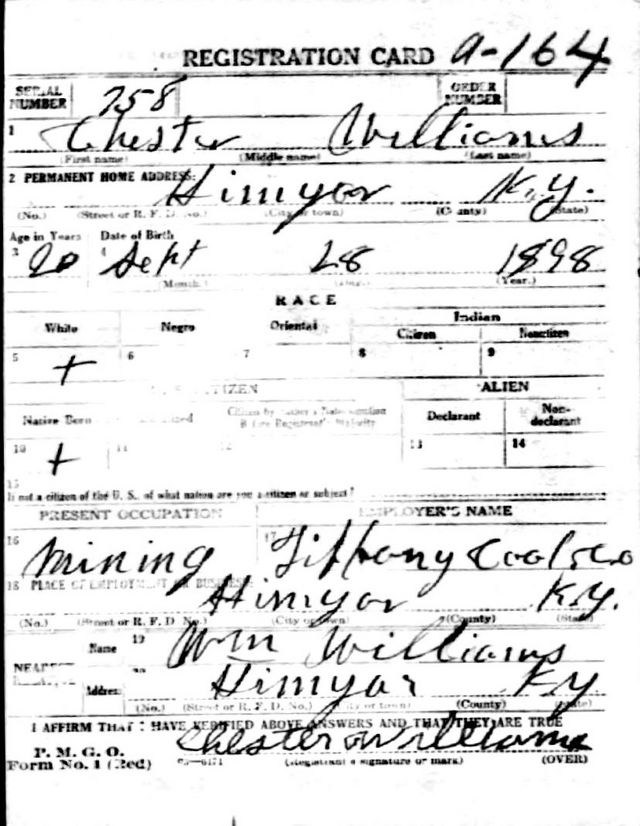 REGISTRATION CARD A-164
SERIAL NUMBER 758 ORDER NUMBER
1 Chester Williams
(First name) (Middle name) (Last name)
2 PERMANENT HOME ADDRESS: Himyar K.Y.
(No.) (Street or R. F. D. No.) (City or town) (County) (State)
Age in Years Date of Birth
3 20 4 Sept 28 1898
(Month.) (Year.)
RACE
White Negro Oriental Indian
Citizen Noncitizen
5 + 6 7 8 9
CITIZEN ALIEN
Native Born Declarant Non-declarant
10 + 11 12 13 14
15
If not a citizen of the U. S., of what nation are you a citizen or subject?
PRESENT OCCUPATION EMPLOYER'S NAME
16 Mining 17 Tiffany Coal Co
18 PLACE OF EMPLOYMENT OR BUSINESS:
Himyar K.Y.
(No.) (Street or R. F. D. No.) (City or town) (County) (State)
Name 19 Wm Williams
NEAREST
Address 20 Himyar K.Y.
(No.) (Street or R. F. D. No.) (City or town) (County) (State)
I AFFIRM THAT I HAVE VERIFIED ABOVE ANSWERS AND THAT THEY ARE TRUE
P. M. G. O.
Form No. 1 (Red) Chester Williams
(Registrant's signature or mark) (OVER)